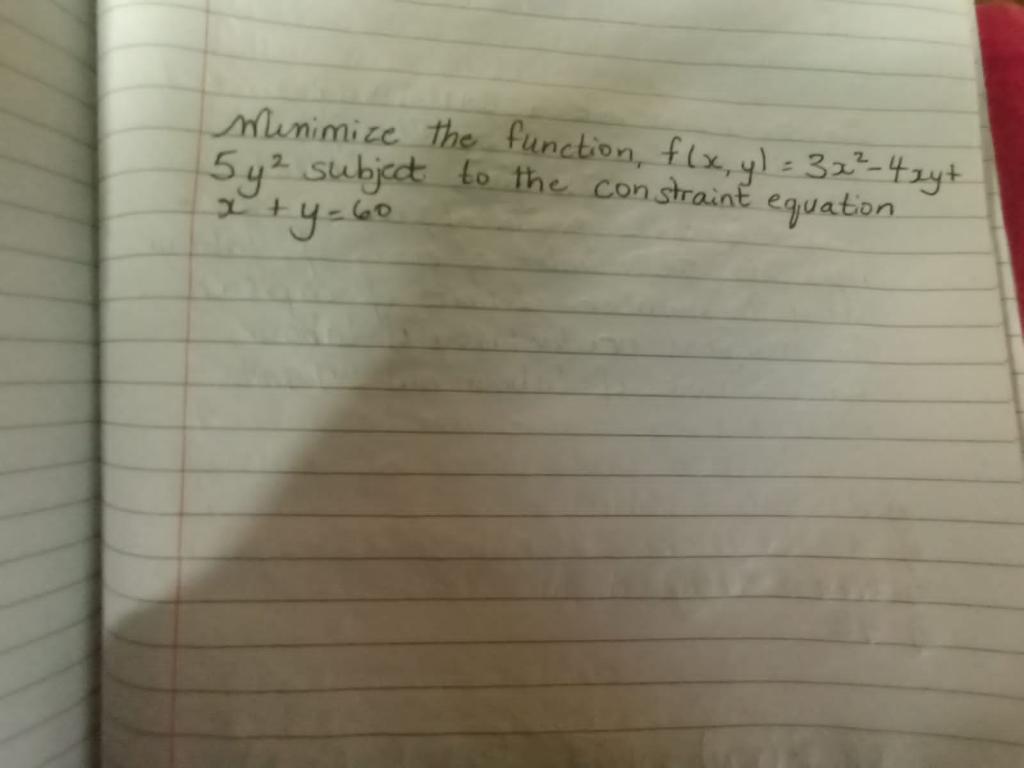 Minimize the function, f(x, y) = 3x² - 4xy +
5y² subject to the constraint equation
x + y = 60